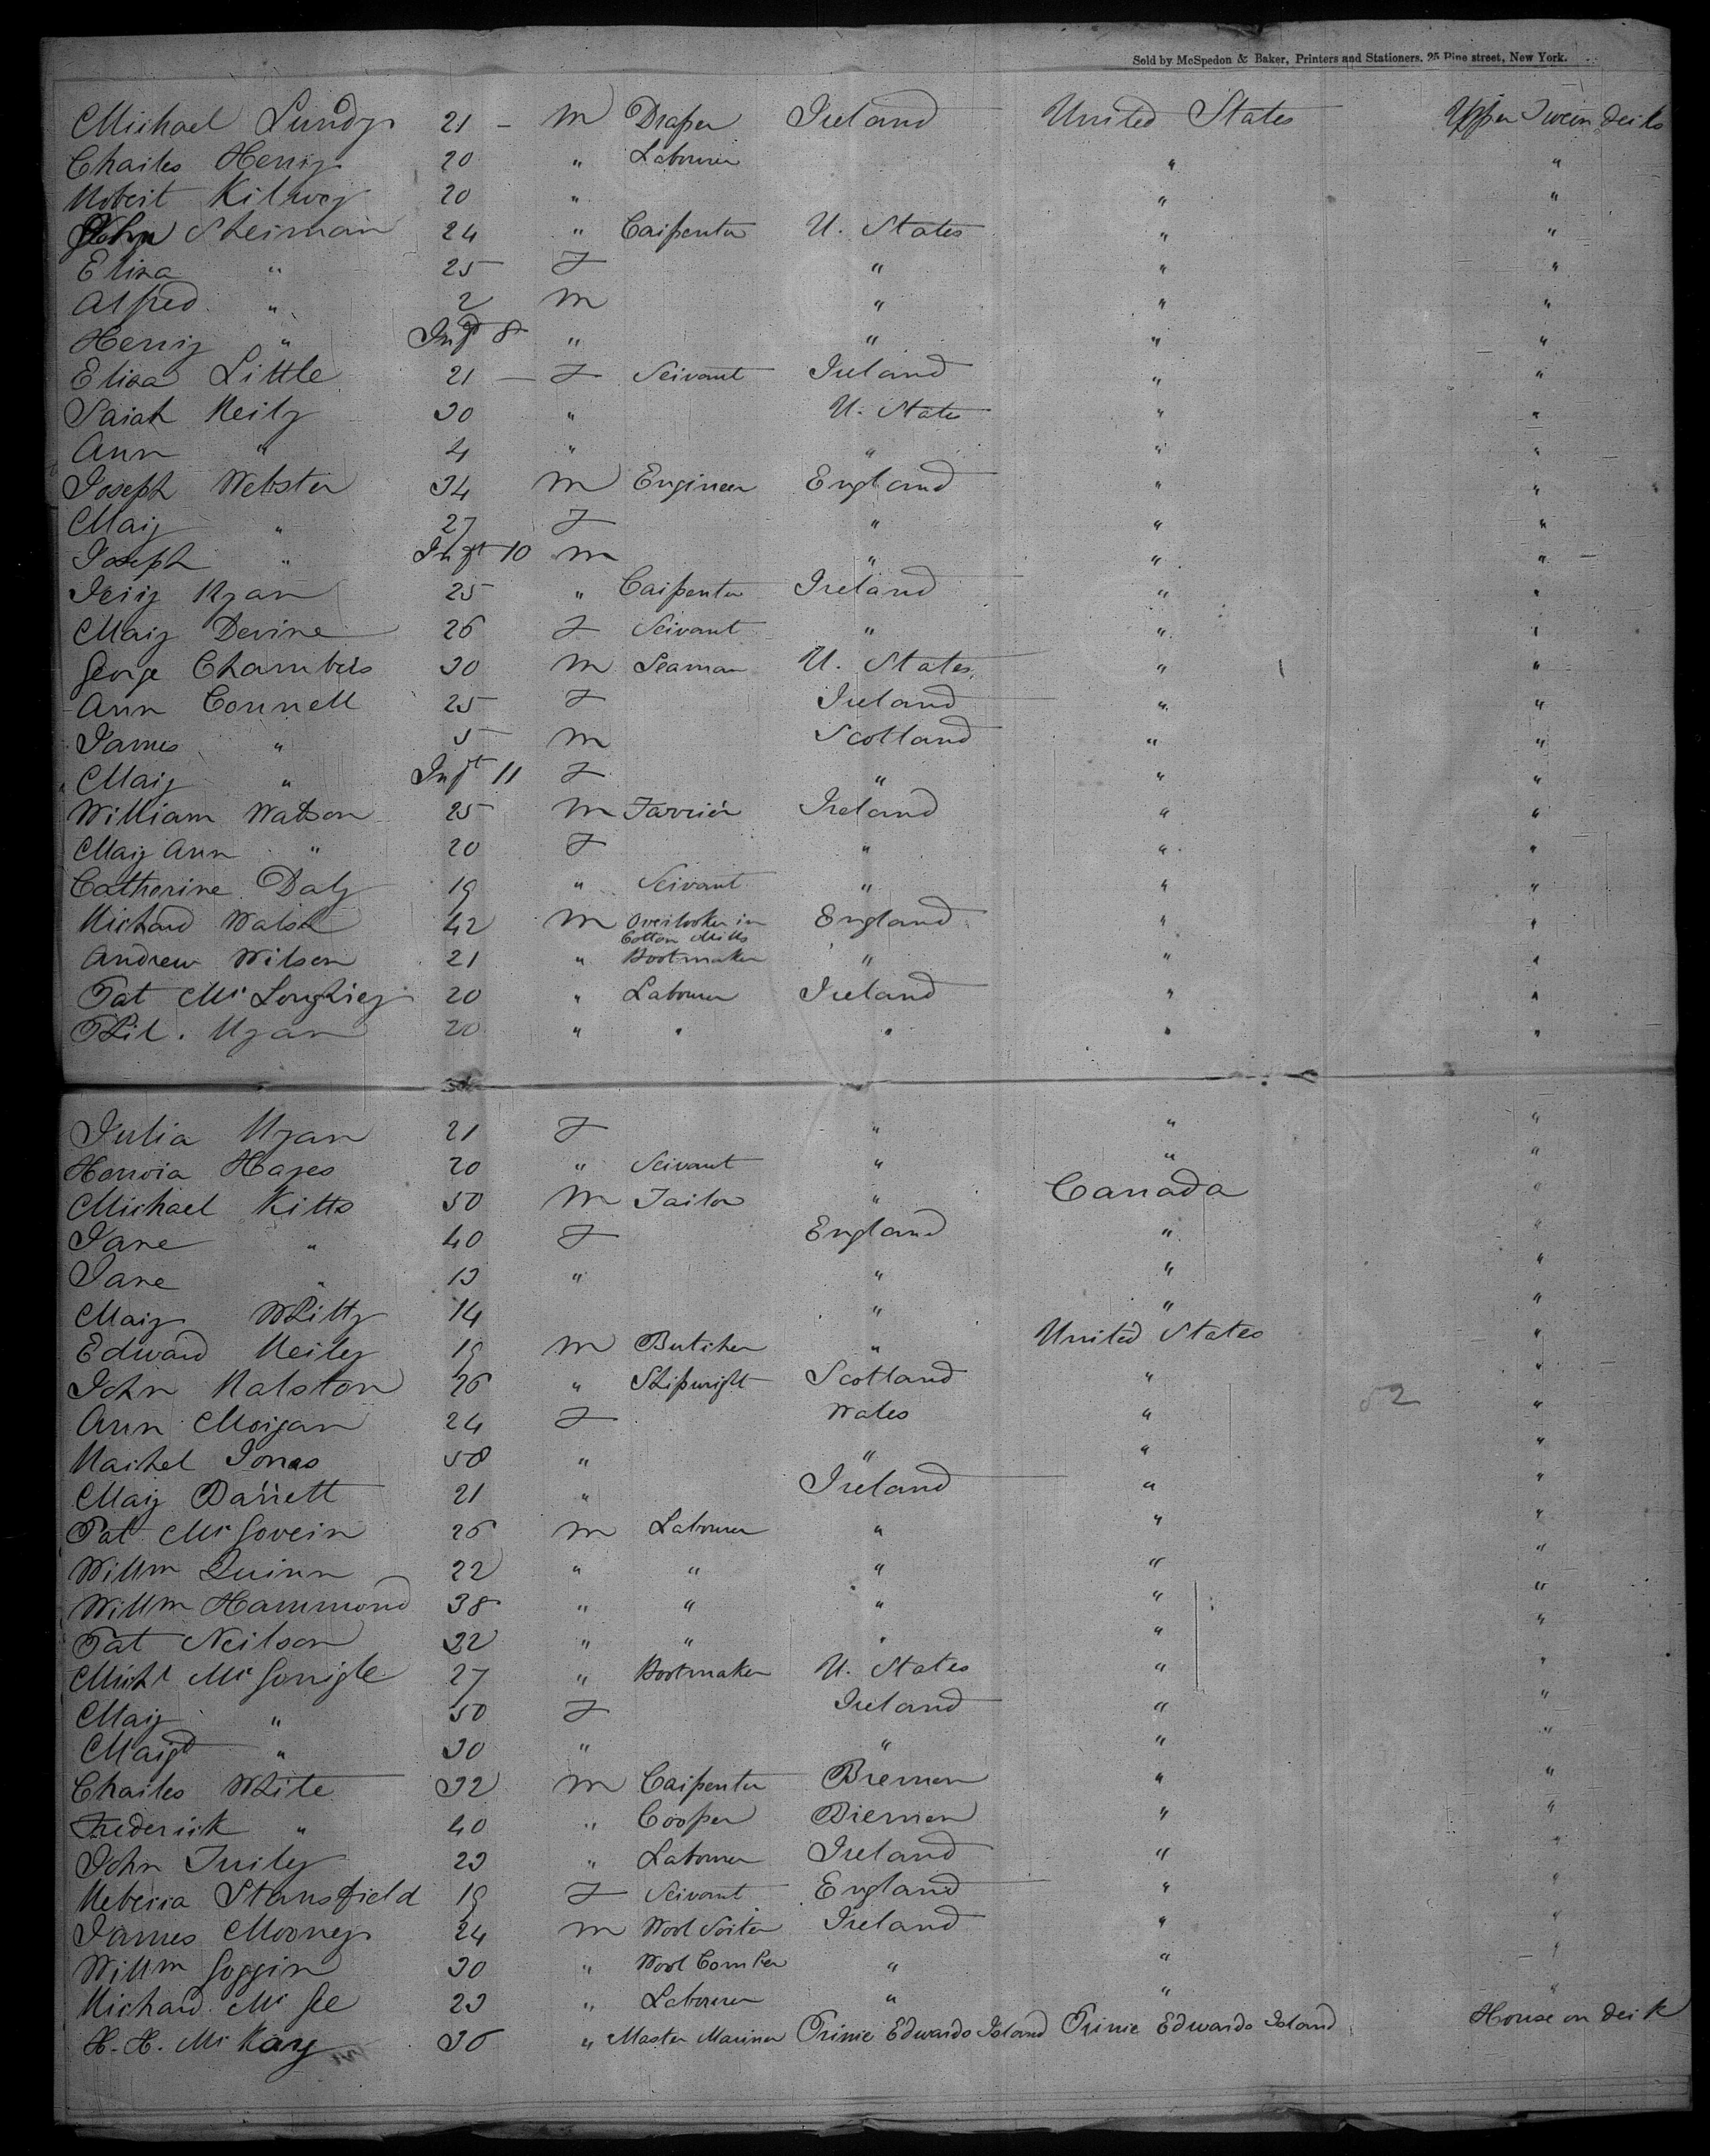 Sold by McSpedon & Baker, Printers and Stationers, 25 Pine street, New York.
Michael Lundy 21 - M Draper Ireland United States Upper Tween Decks
Charles Henry 20 " Labourer " "
Robert Kilroy 20 " " "
John Sherman 24 " Carpenter U. States " "
Eliza " 25 F " " "
Alfred " 2 M " " "
Henry " Inft 8 " " " "
Eliza Little 21 - F Servant Ireland " "
Sarah Reily 30 " U. States " "
Ann " 4 " " " "
Joseph Webster 34 M Engineer England " "
Mary " 27 F " " "
Joseph " Inft 10 M " " "
Jeriy Ryan 25 " Carpenter Ireland " "
Mary Devine 26 F Servant " " "
George Chambers 30 M Seaman U. States " "
Ann Connell 25 F Ireland " "
James " 5 M Scotland " "
Mary " Inft 11 F " " "
William Watson 25 M Farrier Ireland " "
Mary Ann " 20 F " " "
Catherine Daly 19 " Servant " " "
Richard Walsh 42 M Overlooker in Cotton Mills England " "
Andrew Wilson 21 " Bootmaker " " "
Pat McLoughley 20 " Labourer Ireland " "
Phil. Ryan 20 " " " " "
Julia Ryan 21 F " " "
Honoria Hayes 20 " Servant " " "
Michael Kitts 50 M Tailor " Canada "
Jane " 40 F England " "
Jane " 13 " " " "
Mary Whitty 14 " " "
Edward Reiley 19 M Butcher " United States "
John Ralston 26 " Shipwright Scotland " "
52
Ann Morgan 24 F Wales " "
Rachel Jones 58 " " " "
Mary Barrett 21 " Ireland " "
Pat McGovern 26 M Labourer " " "
Willm Quinn 22 " " " " "
Willm Hammond 38 " " " " "
Pat Neilson 32 " " " " "
Michl McGonigle 27 " Bootmaker U. States " "
Mary " 50 F Ireland " "
Margt " 30 " " " "
Charles White 32 M Carpenter Bremen " "
Frederick " 40 " Cooper Bremen " "
John Turley 23 " Labourer Ireland " "
Rebecca Stansfield 19 F Servant England " "
James Mooney 24 M Wool Sorter Ireland " "
Willm Goggin 30 " Wool Comber " " "
Richard McGee 23 " Labourer " " "
H. H. McKay 36 " Master Mariner Prince Edwards Island Prince Edwards Island House on deck